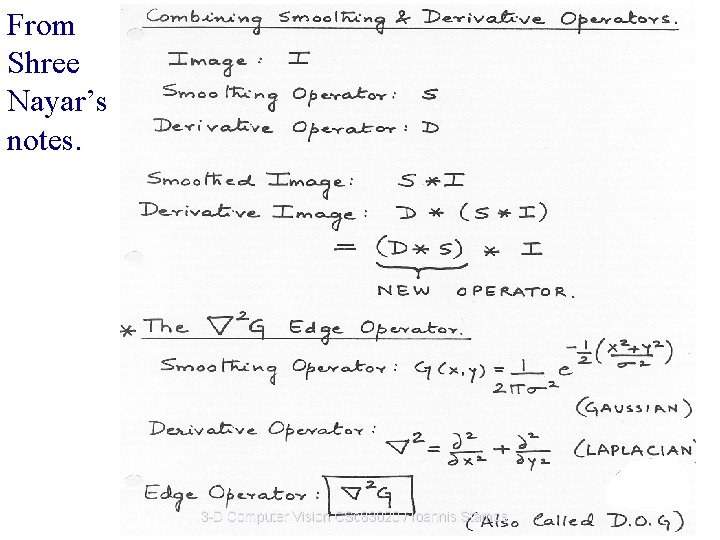 From
Shree
Nayar's
notes.
Combining Smoothing & Derivative Operators.
Image : I
Smoothing Operator : S
Derivative Operator : D
Smoothed Image : S * I
Derivative Image : D * (S * I)
= (D * S) * I
NEW OPERATOR.
* The ∇²G Edge Operator.
Smoothing Operator : G(x,y) = 1/2πσ² e^-1/2(x²+y²/σ²)
(GAUSSIAN)
Derivative Operator : ∇² = ∂²/∂x² + ∂²/∂y² (LAPLACIAN)
Edge Operator : ∇²G
3-D Computer Vision
(Also Called D.O.G)